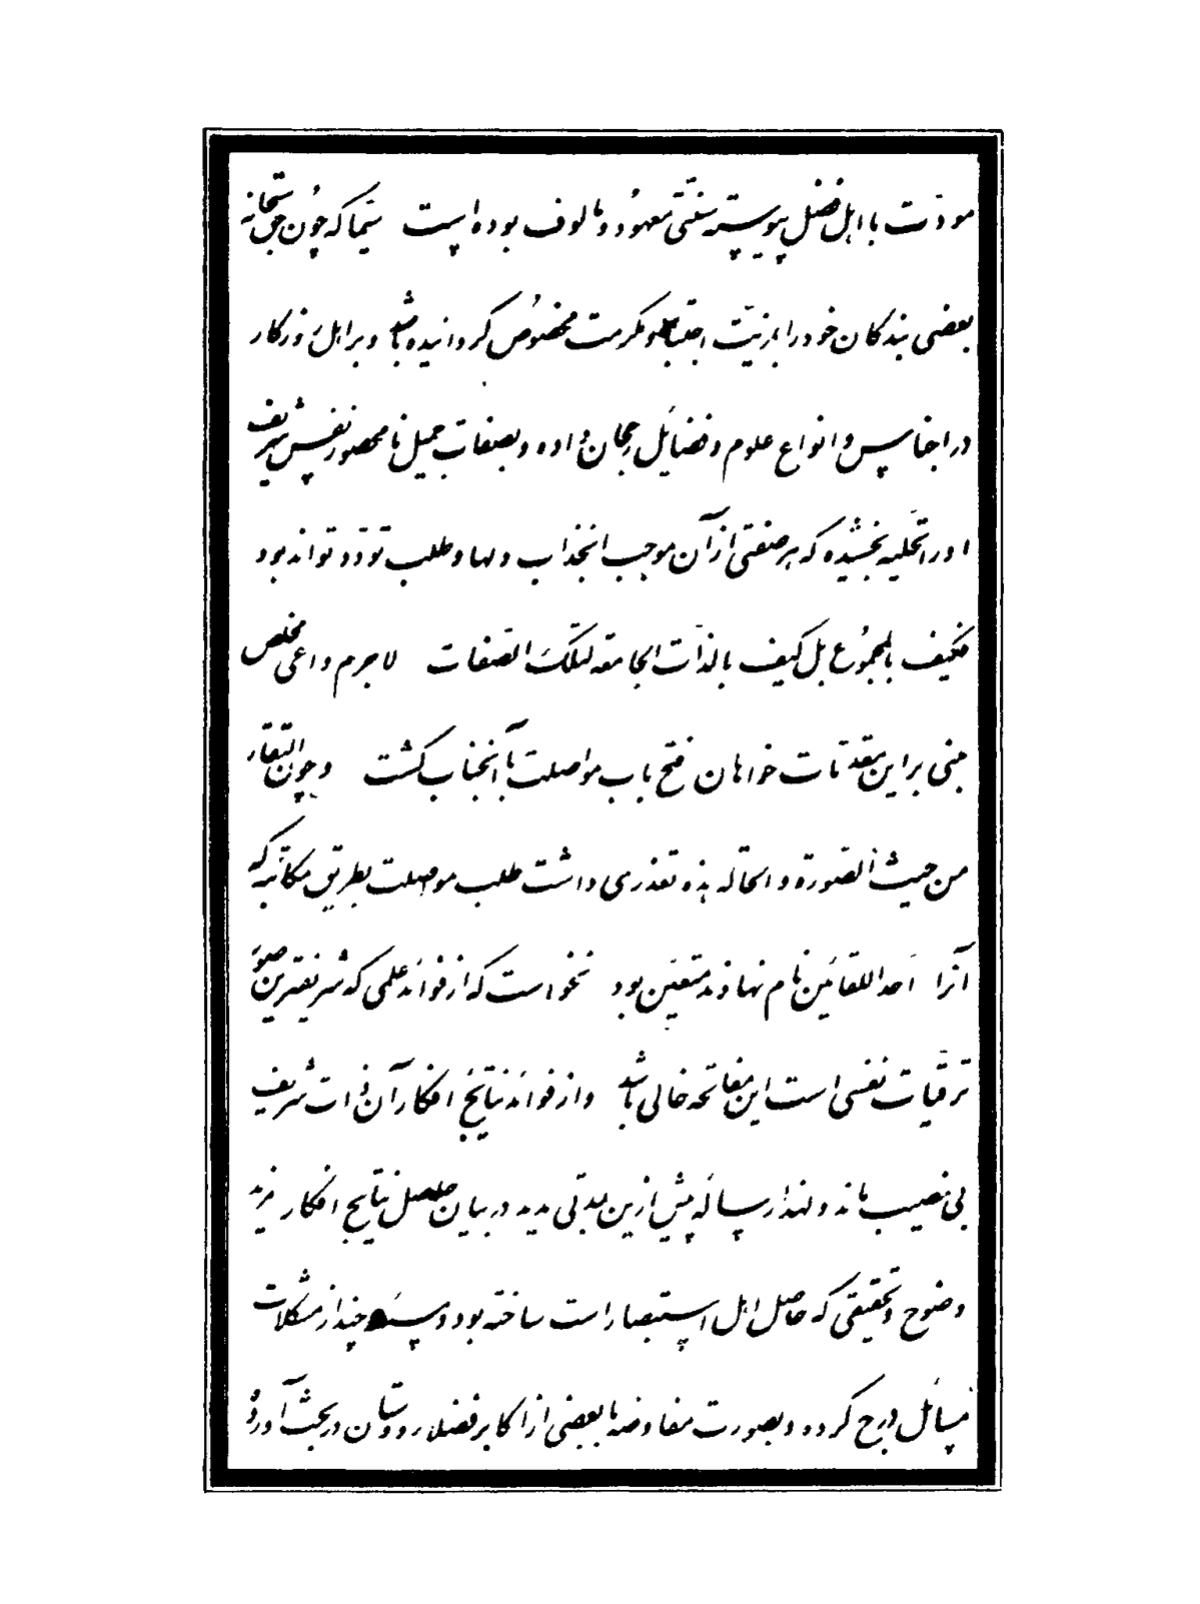 مودّت با اهل فضل پیوسته سنّتی معهود و مالوف بوده است سیّما که چون حق سبحانه
بعضی بندکان خود را بمزیّت اجتبا و مکرمت مخصوص کردانیده باشد و بر اهل روزکار
در اجناس و انواع علوم و فضایل رجحان داده و بصفات جمیل نامحصور نفس شریف
او را تحلیه بخشیده که هر صفتی از آن موجب انجذاب دلها و طلب تودّد تواند بود
فکیف بالمجموع بل کیف بالذّات الجامعه لتلک الصّفات لاجرم داعی مخلص
مبنی بر این مقدّمات خواهان فتح باب مواصلت با آنجناب کشت و چون التقاء
من حیث الصّورة و الحاله هذه تعذری داشت طلب موصلت بطریق مکاتبه که
آنرا احد اللقائین نام نهاوند متعیّن بود نخواست که از فوائد علمی که شریفترین صوَ
ترقّیات نفسی است این مفاتحه خالی باشد و از فوائد نتایج افکار آن ذات شریف
بی نصیب ماند و لهذا رساله پیش ازین مدتی مدید در بیان حاصل نتایج افکار مزید
وضوح و تحقیقی که حاصل اهل استبصار است ساخته بود و چند از مشکلات
مسائل درج کرده و بصورت مفاوضه با بعضی از اکابر فضلا و دوستان در بحث آورده